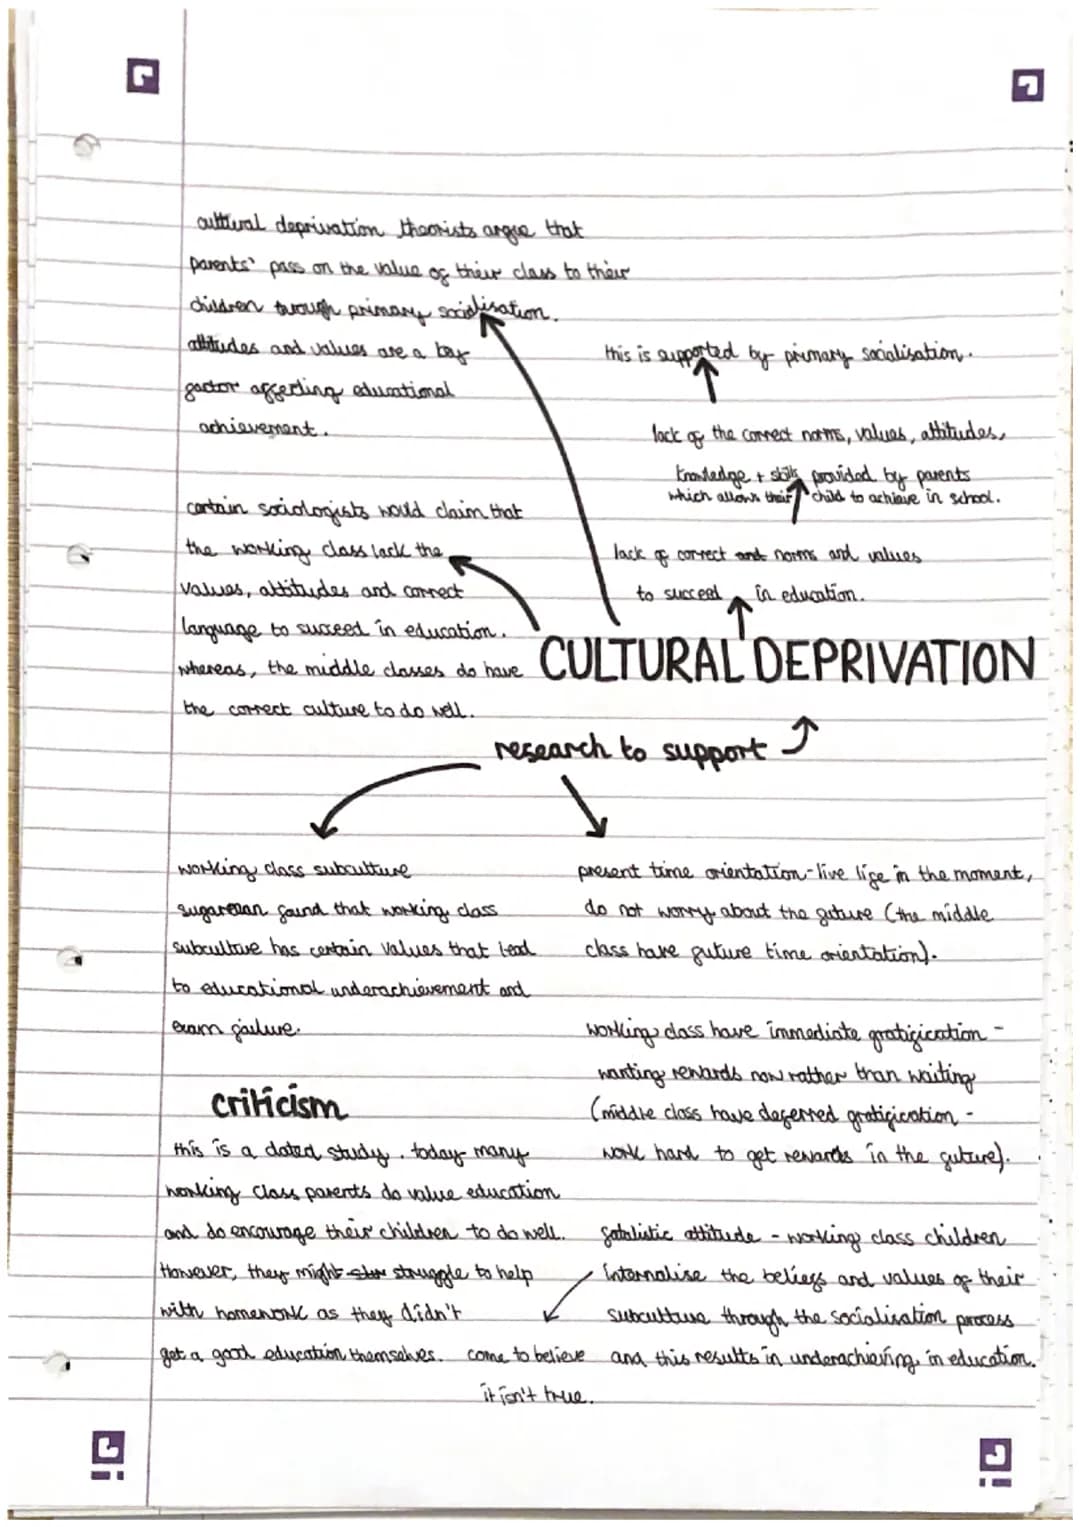 cultural deprivation theorists argue that
parents' pass on the value of their class to their
children through primary socialisation.
attitudes and values are a key
factor affecting educational
achievement.
this is supported by primary socialisation.
lack of the correct norms, values, attitudes,
knowledge + skills provided by parents
which allows their child to achieve in school.
lack of correct and norms and values
to succeed in education.
certain sociologists would claim that
the working class lack the
values, attitudes and correct
language to succeed in education.
whereas, the middle classes do have
the correct culture to do well.
CULTURAL DEPRIVATION
research to support
working class subculture
sugarman found that working class
subculture has certain values that lead
to educational underachievement and
exam failure.
present time orientation - live life in the moment,
do not worry about the future (the middle
class have future time orientation).
working class have immediate gratification -
wanting rewards now rather than waiting
(middle class have deferred gratification -
work hard to get rewards in the future).
criticism
this is a dated study. today many
working class parents do value education
and do encourage their children to do well.
However, they might struggle to help
with homework as they didn't
get a good education themselves.
fatalistic attitude - working class children
internalise the beliefs and values of their
subculture through the socialisation process
and this results in underachieving in education.
come to believe
it isn't true.